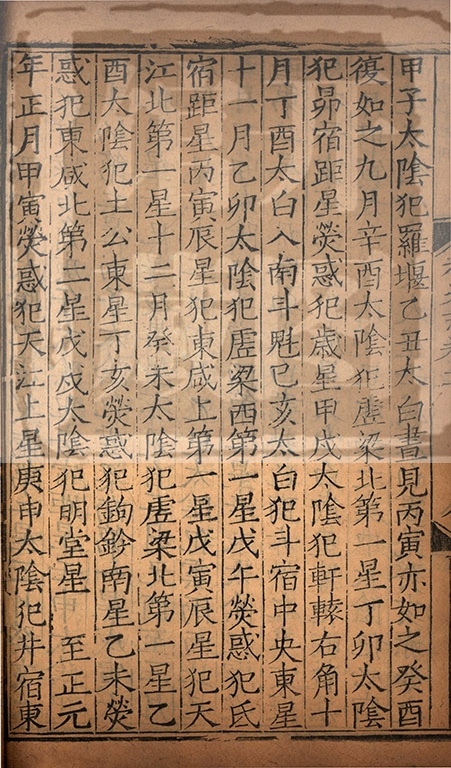 甲子太陰犯羅堰乙丑太白晝見丙寅亦如之癸酉
復如之九月辛酉太陰犯虛梁北第一星丁卯太陰
犯昴宿距星熒惑犯歲星甲戌太陰犯軒轅右角十
月丁酉太白入南斗魁己亥太白犯斗宿中央東星
十一月乙卯太陰犯虛梁西第一星戊午熒惑犯氐
宿距星丙寅辰星犯東咸上第一星戊寅辰星犯天
江北第一星十二月癸未太陰犯虛梁北第一星乙
酉太陰犯土公東星丁亥熒惑犯鉤鈐南星乙未熒
惑犯東咸北第二星戊戌太陰犯明堂星　至正元
年正月甲寅熒惑犯天江上星庚申太陰犯井宿東